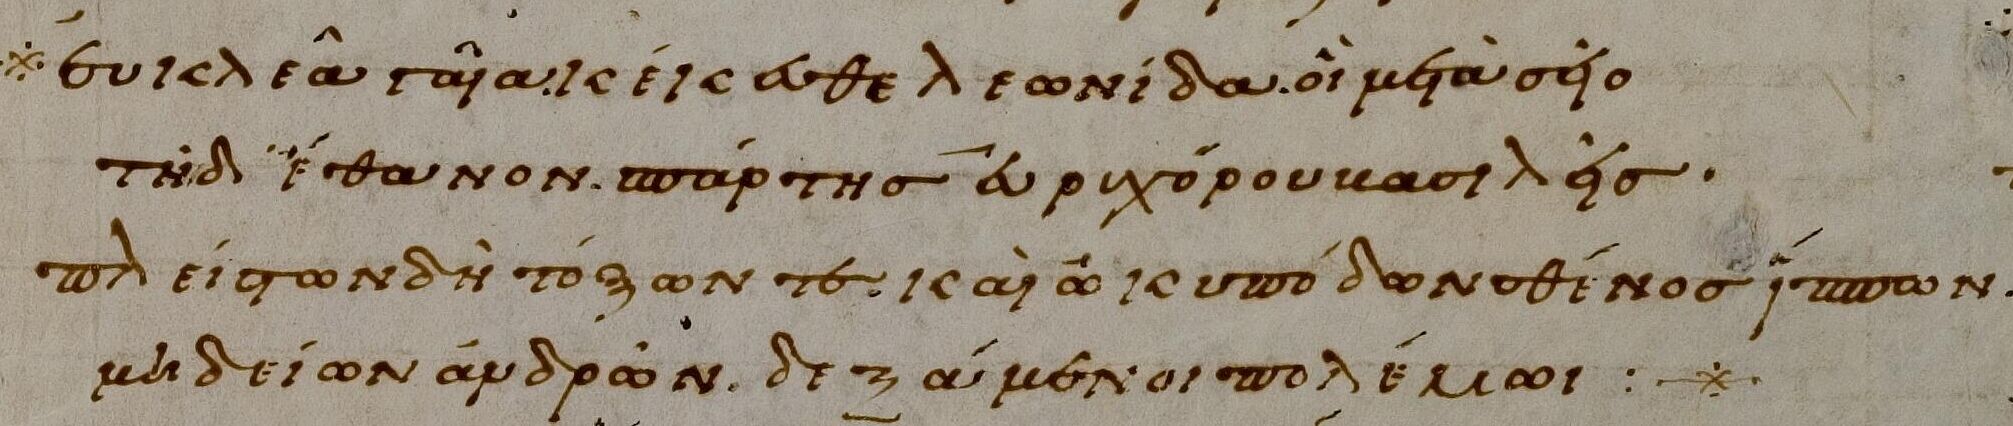 εὐκλεᾶ γαῖα κέκευθε λεωνίδα. οἳ μετὰ σεῖο
τῆδ' ἔθανον. σπάρτησ εὐριχόρου βασιλεῖσ.
πλείστων δὴ τόξων τε. καὶ ὠκυπόδων σθένοσ ἵππων.
μηδείων ἀνδρῶν. δεξάμενοι πολέμωι :